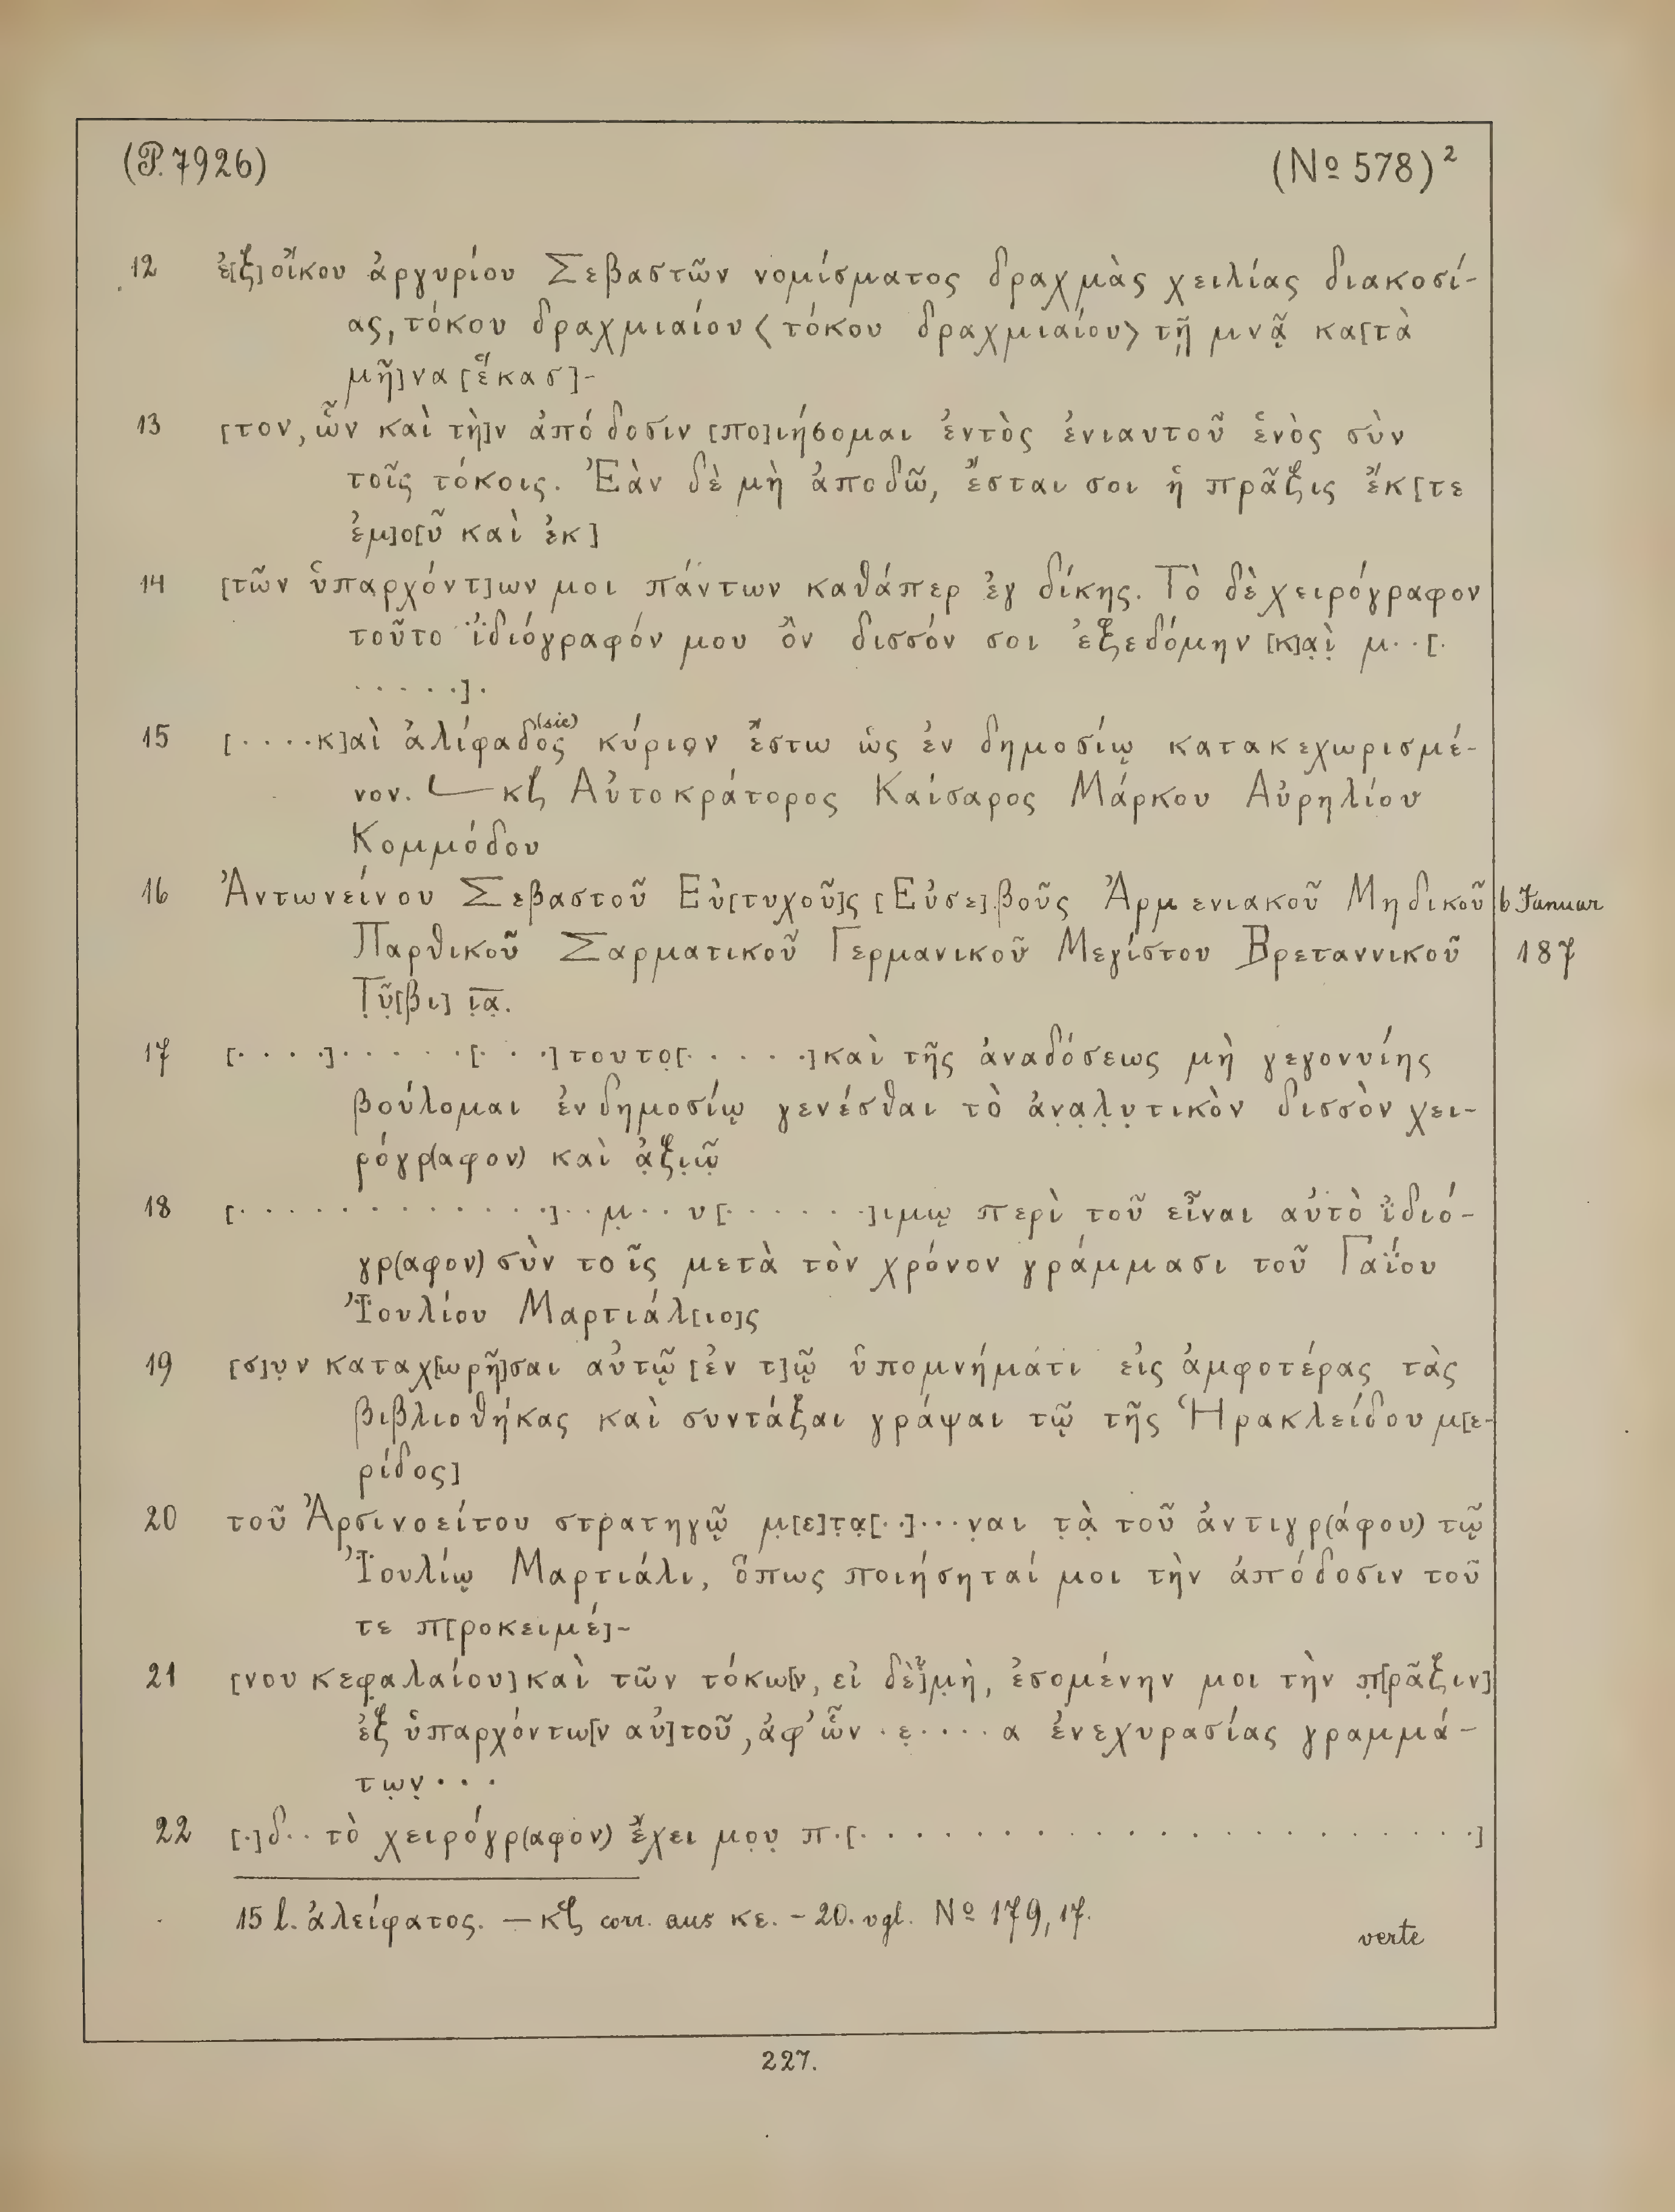 (P. 7926) (No 578)²
12 ἐ[ξ] οἴκου ἀργυρίου Σεβαστῶν νομίσματος δραχμὰς χειλίας διακοσί-
ας, τόκου δραχμιαίου < τόκου δραχμιαίου > τῇ μνᾷ κα[τὰ
μῆ]να [ἕκασ]-
13 [τον, ὧν καὶ τὴ]ν ἀπόδοσιν [πο]ιήσομαι ἐντὸς ἐνιαυτοῦ ἑνὸς σὺν
τοῖς τόκοις. Ἐὰν δὲ μὴ ἀποδῶ, ἔσται σοι ἡ πρᾶξις ἔκ[τε
ἐμ]ο[ῦ καὶ ἐκ]
14 [τῶν ὑπαρχόντ]ων μοι πάντων καθάπερ ἐγ δίκης. Τὸ δὲ χειρόγραφον
τοῦτο ἰ̈διόγραφόν μου ὂν δισσόν σοι ἐξεδόμην [κ]α̣ὶ̣ μ··[·
·····]·
15 [····κ]αὶ ἀλίφαδος (sic) κύριο̣ν ἔστω ὡς ἐν δημοσίῳ κατακεχωρισμέ-
νον. 𐅹 κζ Αὐτοκράτορος Καίσαρος Μάρκου Αὐρηλίου
Κομμόδου
16 Ἀντωνείνου Σεβαστοῦ Εὐ[τυχοῦ]ς [Εὐσε]βοῦς Ἀρμενιακοῦ Μηδικοῦ 6 Januar
Παρθικοῦ Σαρματικοῦ Γερμανικοῦ Μεγίστου Βρεταννικοῦ 187
Τ̣ῦ̣[βι] ι̣α̣.
17 [····]·····[···]τουτο̣[·····]καὶ τῆς ἀναδόσεως μὴ γεγονυίης
βούλομαι ἐν δημοσίῳ γενέσθαι τὸ ἀν̣α̣λ̣υ̣τικὸν δισσὸν χει-
ρόγρ(αφον) καὶ ἀ̣ξι̣ῶ̣
18 [············]··μ̣··υ[······]ιμῳ περὶ τοῦ εἶναι αὐτὸ ἰ̈διό-
γρ(αφον) σὺν τοῖς μετὰ τὸν χρόνον γράμμασι τοῦ Γαΐου
Ἰ̈ουλίου Μαρτιάλ[ιο]ς
19 [σ]υ̣ν καταχ[ωρῆ]σαι αὐτῷ [ἐν τ]ῷ ὑπομνήματι εἰς ἀμφοτέρας τὰς
βιβλιοθήκας καὶ συντάξαι γράψαι τῷ τῆς Ἡρακλείδου μ[ε-
ρίδος]
20 τοῦ Ἀρσινοείτου στρατηγῷ μ̣[ε]τ̣α̣[··]···ν̣αι τ̣ὰ̣ τοῦ ἀντιγρ(άφου) τῷ
Ἰ̈ουλίῳ Μαρτιάλι, ὅπως ποιήσηταί μοι τὴν ἀπόδοσιν τοῦ
τε π[ροκειμέ]-
21 [νου κεφαλαίου] καὶ τῶν τόκω[ν, εἰ δὲ] μ̣ὴ, ἐσομένην μοι τὴν π̣[ρᾶξιν]
ἐξ ὑπαρχόντω[ν αὐ]τοῦ, ἀφ’ ὧν ·ε̣····α ἐνεχυρασίας γραμμά-
τω̣ν̣···
22 [·]δ·· τὸ χειρόγρ(αφον) ἔχει μο̣υ̣ π·[····················]
15 l. ἀλείφατος. — κζ corr. aus κε. - 20. vgl. No 179, 17.
verte
227.